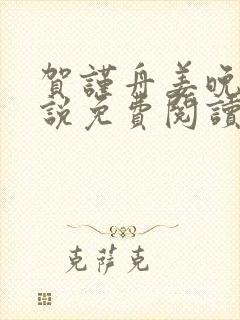 賀謹舟姜晚
說免費閱讀
克萨克